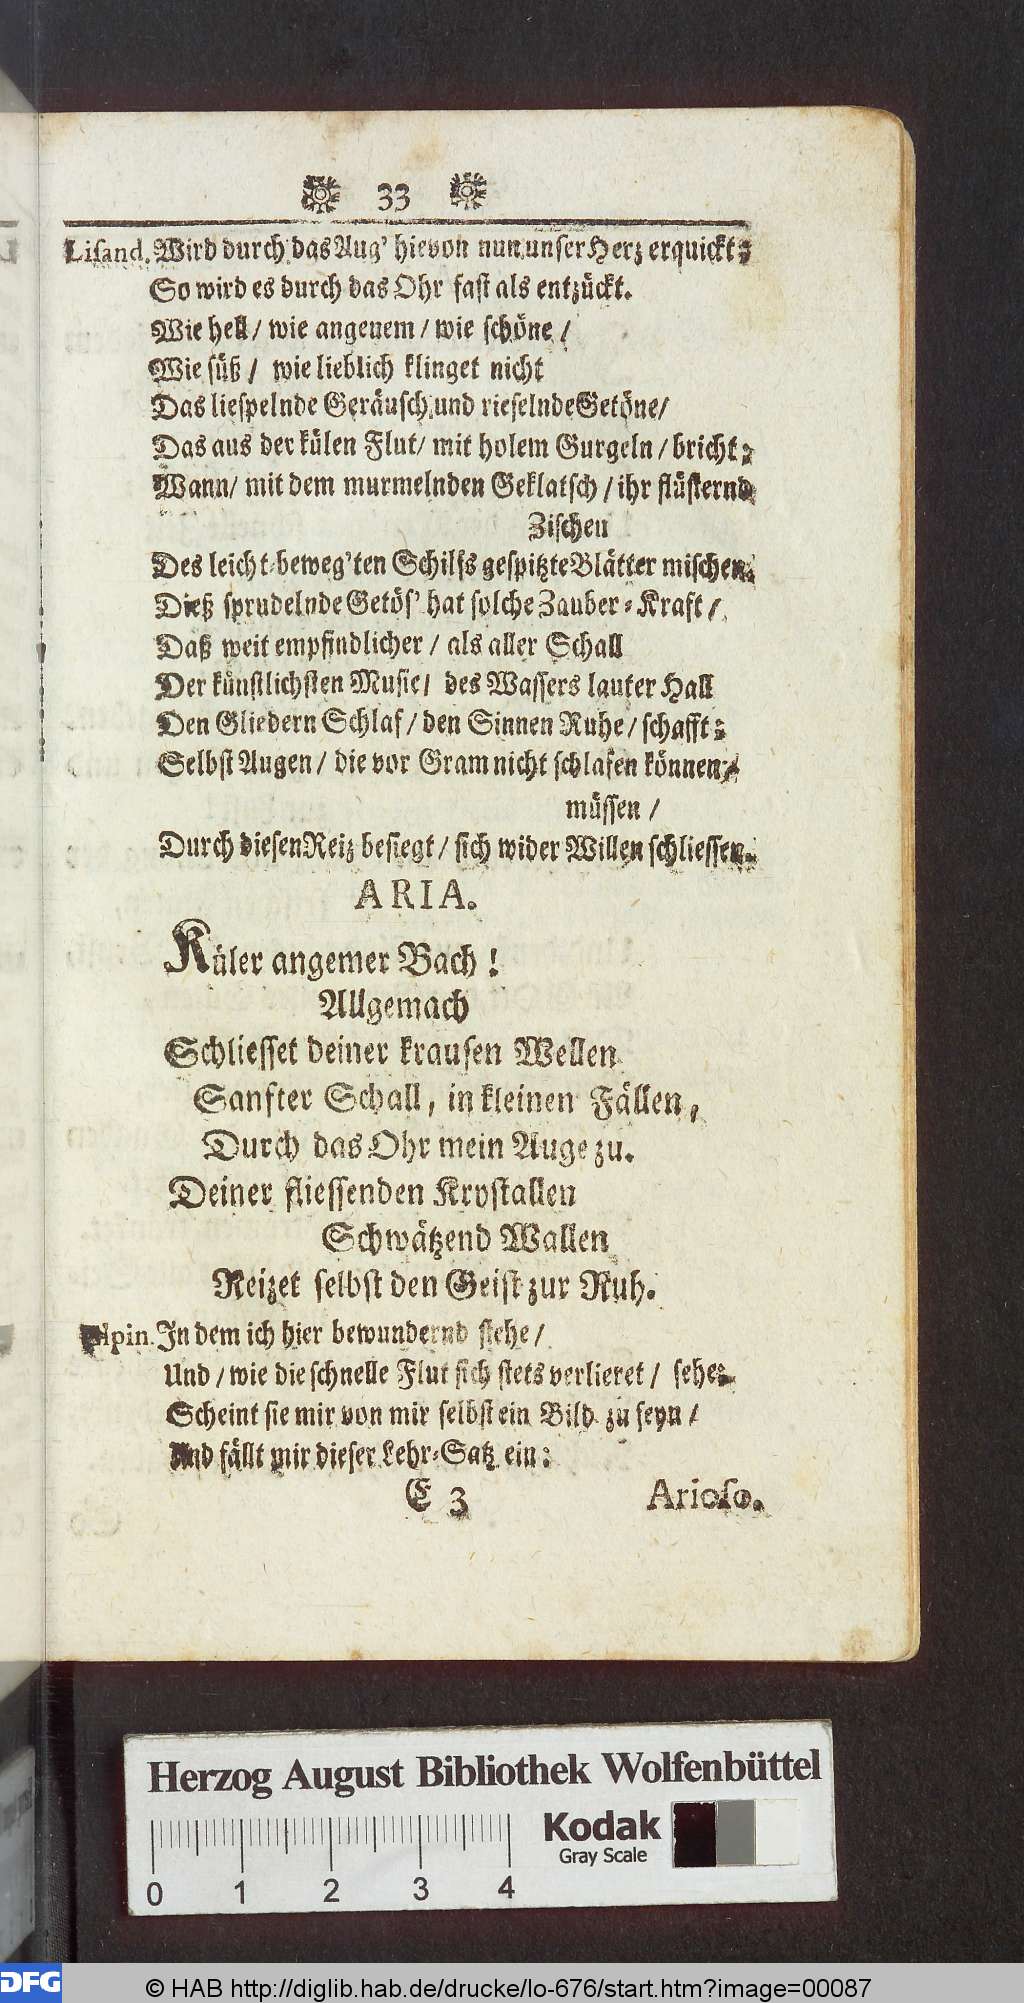 33
Lisand. Wird durch das Aug' hievon nun unser Herz erquickt;
So wird es durch das Ohr fast als entzückt.
Wie hell / wie angenem / wie schöne /
Wie süß / wie lieblich klinget nicht
Das liespelnde Geräusch und rieselnde Getöne /
Das aus der külen Flut / mit holem Gurgeln / bricht;
Wann / mit dem murmelnden Geklatsch / ihr flüsternd
Zischen
Des leicht-beweg'ten Schilfs gespitzte Blätter mischen.
Dieß sprudelnde Getös' hat solche Zauber-Kraft /
Daß weit empfindlicher / als aller Schall
Der künstlichsten Music / des Wassers lauter Hall
Den Gliedern Schlaf / den Sinnen Ruhe / schafft;
Selbst Augen / die vor Gram nicht schlafen können /
müssen /
Durch diesen Reiz besiegt / sich wider Willen schliessen.
ARIA.
Küler angemer Bach!
Allgemach
Schliesset deiner krausen Wellen
Sanfter Schall, in kleinen Fällen,
Durch das Ohr mein Auge zu.
Deiner fliessenden Krystallen
Schwätzend Wallen
Reizet selbst den Geist zur Ruh.
Alpin. In dem ich hier bewundernd stehe /
Und / wie die schnelle Flut sich stets verlieret / sehe;
Scheint sie mir von mir selbst ein Bild zu seyn /
Und fällt mir dieser Lehr-Satz ein:
E 3 Arioso.
Herzog August Bibliothek Wolfenbüttel
Kodak
Gray Scale
0 1 2 3 4
DFG
© HAB http://diglib.hab.de/drucke/lo-676/start.htm?image=00087